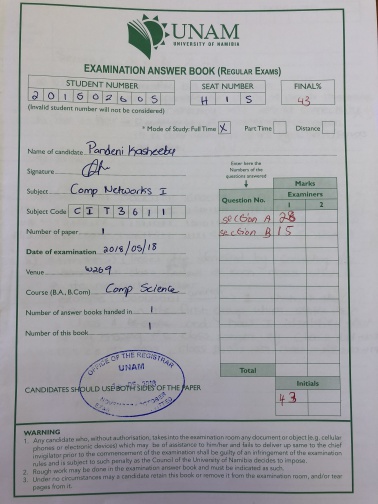 UNAM
UNIVERSITY OF NAMIBIA
EXAMINATION ANSWER BOOK (REGULAR EXAMS)
STUDENT NUMBER
201502605
(Invalid student number will not be considered)
SEAT NUMBER
H15
FINAL%
43
* Mode of Study: Full Time X Part Time Distance
Name of candidate Pandeni Kasheeta
Signature
Subject Comp Networks I
Subject Code CIT3611
Number of paper 1
Date of examination 2018/05/18
Venue W269
Course (B.A., B.Com) Comp Science
Number of answer books handed in 1
Number of this book 1
Enter here the Numbers of the questions answered
Marks
Question No. Examiners
1 2
section A 28
section B 15
Total
Initials
43
OFFICE OF THE REGISTRAR
UNAM
CANDIDATES SHOULD USE BOTH SIDES OF THE PAPER
WARNING
1. Any candidate who, without authorisation, takes into the examination room any document or object (e.g. cellular
phones or electronic devices) which may be of assistance to him/her and fails to deliver up same to the chief
invigilator prior to the commencement of the examination shall be guilty of an infringement of the examination
rules and is subject to such penalty as the Council of the University of Namibia decides to impose.
2. Rough work may be done in the examination answer book and must be indicated as such.
3. Under no circumstances may a candidate retain this book or remove it from the examination room, and/or tear
pages from it.